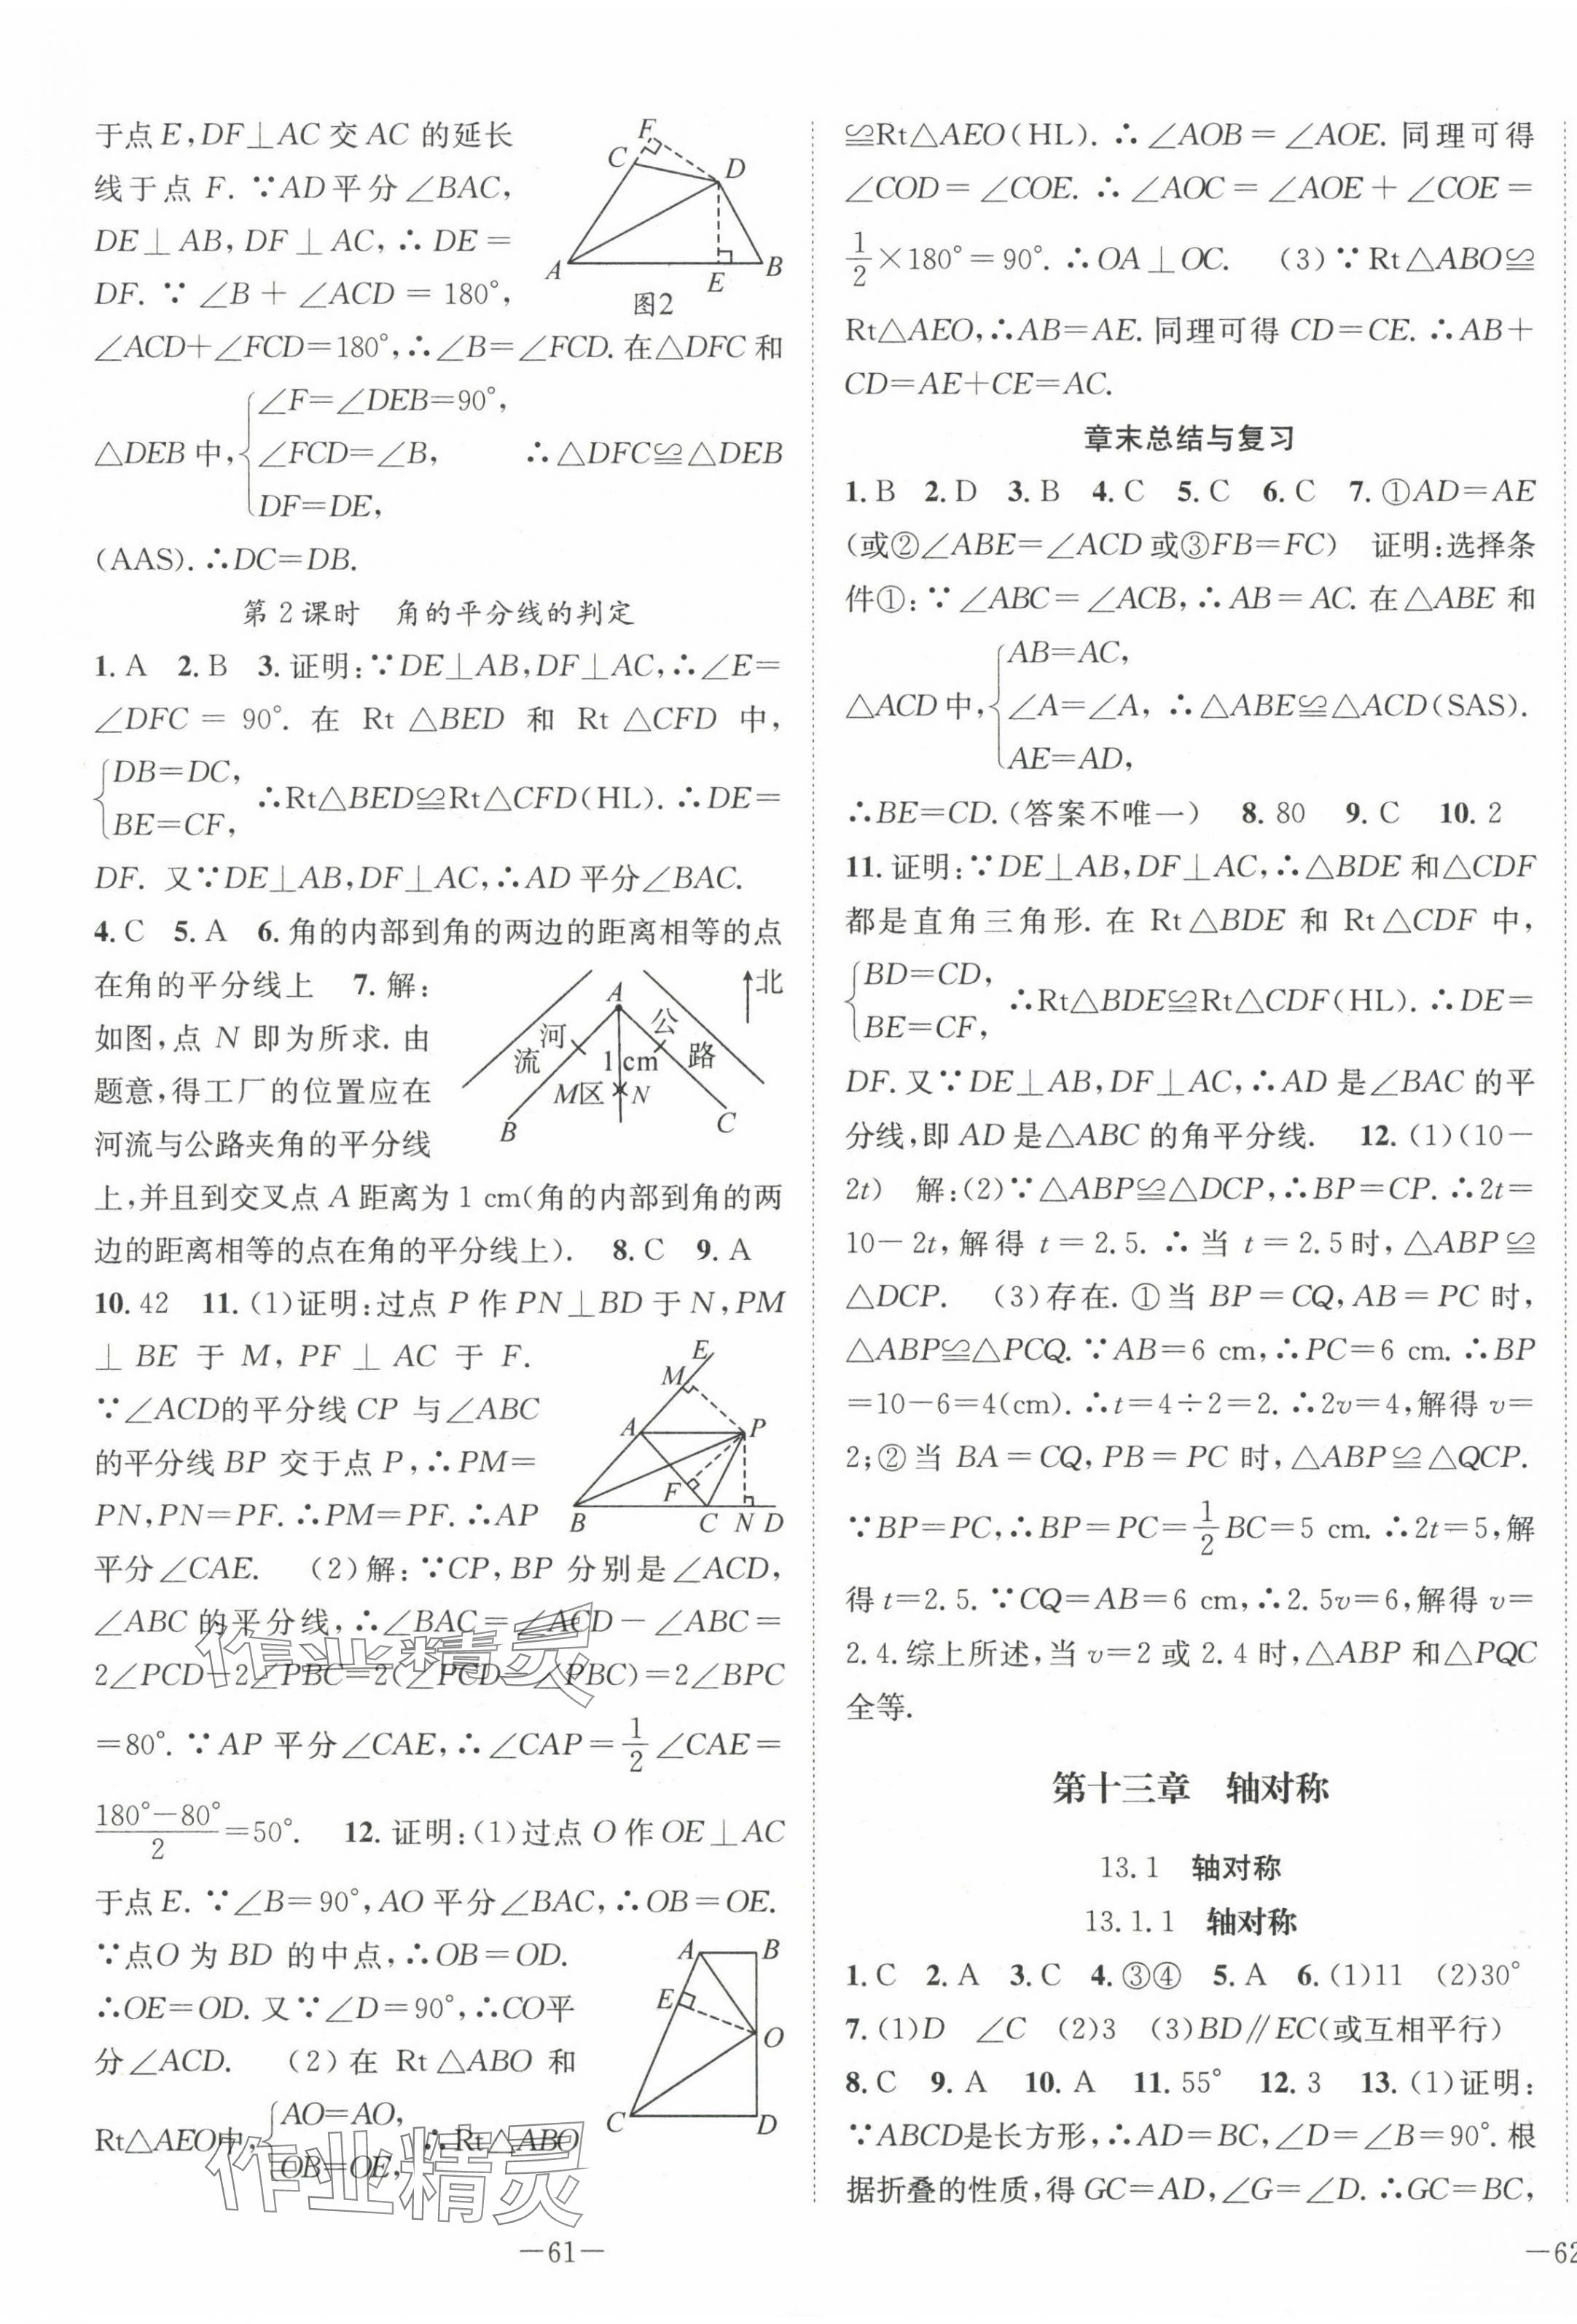 于点 E,DF⊥AC 交 AC 的延长
线于点 F. ∵AD平分∠BAC,
DE⊥AB,DF⊥AC,∴DE=
DF. ∵∠B+∠ACD=180°,
F
C
D
A
E
B
图2
∠ACD+∠FCD=180°,∴∠B=∠FCD. 在△DFC 和
∠F=∠DEB=90°,
△DEB 中,{∠FCD=∠B, ∴△DFC≌△DEB
DF=DE,
(AAS). ∴DC=DB.
第2课时 角的平分线的判定
1. A 2. B 3. 证明:∵DE⊥AB,DF⊥AC,∴∠E=
∠DFC = 90°. 在 Rt △BED 和 Rt △CFD 中,
{DB=DC,
BE=CF,
∴Rt△BED≌Rt△CFD(HL). ∴DE=
DF. 又∵DE⊥AB,DF⊥AC,∴AD 平分∠BAC.
4. C 5. A 6. 角的内部到角的两边的距离相等的点
在角的平分线上 7. 解:
如图,点 N 即为所求. 由
题意,得工厂的位置应在
河流与公路夹角的平分线
北
A
河
流
公
路
1 cm
M区
N
B
C
上,并且到交叉点 A 距离为 1 cm(角的内部到角的两
边的距离相等的点在角的平分线上). 8. C 9. A
10. 42 11. (1)证明:过点 P 作 PN⊥BD 于 N,PM
⊥ BE 于 M, PF ⊥ AC 于 F.
∵∠ACD的平分线 CP 与∠ABC
的平分线 BP 交于点 P,∴PM=
PN,PN=PF. ∴PM=PF. ∴AP
E
M
A
P
F
B
C
N
D
平分∠CAE. (2)解:∵CP,BP 分别是∠ACD,
∠ABC 的平分线,∴∠BAC=∠ACD-∠ABC=
2∠PCD-2∠PBC=2(∠PCD-∠PBC)=2∠BPC
=80°. ∵AP 平分∠CAE,∴∠CAP=1/2∠CAE=
(180°-80°)/2=50°. 12. 证明:(1)过点 O 作 OE⊥AC
于点 E. ∵∠B=90°,AO 平分∠BAC,∴OB=OE.
∵点O 为 BD 的中点,∴OB=OD.
∴OE=OD. 又∵∠D=90°,∴CO平
分∠ACD. (2)在 Rt△ABO 和
Rt△AEO中,{AO=AO,
OB=OE,
∴Rt△ABO
A
B
E
O
C
D
作业精灵
作业精灵
—61—
≌Rt△AEO(HL). ∴∠AOB=∠AOE. 同理可得
∠COD=∠COE. ∴∠AOC=∠AOE+∠COE=
1/2×180°=90°. ∴OA⊥OC. (3)∵Rt△ABO≌
Rt△AEO,∴AB=AE. 同理可得 CD=CE. ∴AB+
CD=AE+CE=AC.
章末总结与复习
1. B 2. D 3. B 4. C 5. C 6. C 7. ①AD=AE
(或②∠ABE=∠ACD或③FB=FC) 证明:选择条
件①:∵∠ABC=∠ACB,∴AB=AC. 在△ABE 和
AB=AC,
△ACD 中,{∠A=∠A, ∴△ABE≌△ACD(SAS).
AE=AD,
∴BE=CD. (答案不唯一) 8. 80 9. C 10. 2
11. 证明:∵DE⊥AB,DF⊥AC,∴△BDE 和△CDF
都是直角三角形. 在 Rt△BDE 和 Rt△CDF 中,
{BD=CD,
BE=CF,
∴Rt△BDE≌Rt△CDF(HL). ∴DE=
DF. 又∵DE⊥AB,DF⊥AC,∴AD 是∠BAC 的平
分线,即 AD 是△ABC 的角平分线. 12. (1)(10-
2t) 解:(2)∵△ABP≌△DCP,∴BP=CP. ∴2t=
10-2t,解得 t=2.5. ∴当 t=2.5时,△ABP≌
△DCP. (3)存在. ①当 BP=CQ,AB=PC 时,
△ABP≌△PCQ. ∵AB=6 cm,∴PC=6 cm. ∴BP
=10-6=4(cm). ∴t=4÷2=2. ∴2v=4,解得 v=
2;②当 BA=CQ,PB=PC 时,△ABP≌△QCP.
∵BP=PC,∴BP=PC=1/2BC=5 cm. ∴2t=5,解
得 t=2.5. ∵CQ=AB=6 cm,∴2.5v=6,解得 v=
2.4. 综上所述,当 v=2 或 2.4 时,△ABP 和△PQC
全等.
第十三章 轴对称
13.1 轴对称
13.1.1 轴对称
1. C 2. A 3. C 4. ③④ 5. A 6. (1)11 (2)30°
7. (1)D ∠C (2)3 (3)BD∥EC(或互相平行)
8. C 9. A 10. A 11. 55° 12. 3 13. (1)证明:
∵ABCD是长方形,∴AD=BC,∠D=∠B=90°. 根
据折叠的性质,得 GC=AD,∠G=∠D. ∴GC=BC,
—62